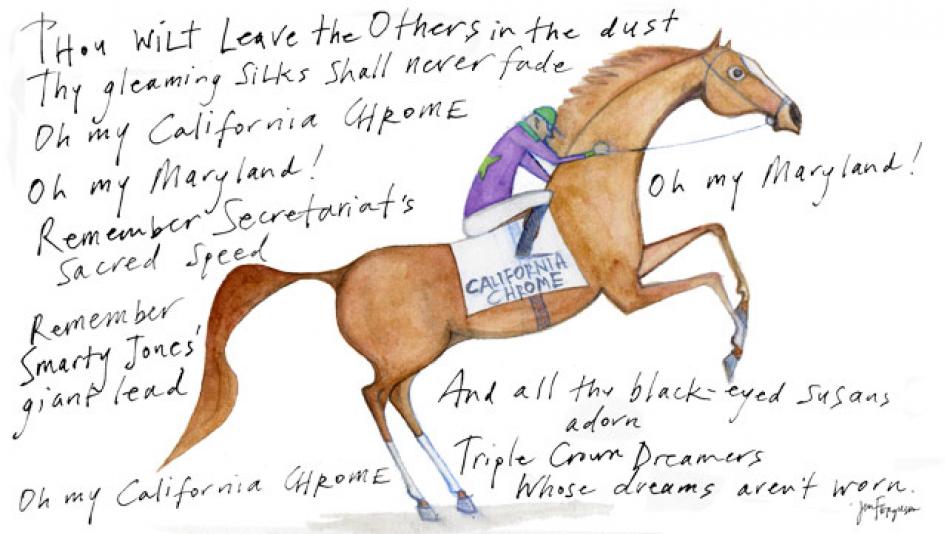 Thou Wilt Leave the Others in the dust
Thy gleaming Silks Shall never fade
Oh my California CHROME
Oh my Maryland!
Oh my Maryland!
Remember Secretariat's
Sacred Speed
CALIFORNIA
CHROME
Remember
Smarty Jones'
giant lead
And all thy black-eyed susans
adorn
Triple Crown Dreamers
Whose dreams aren't worn.
Oh my California CHROME
Jen Ferguson